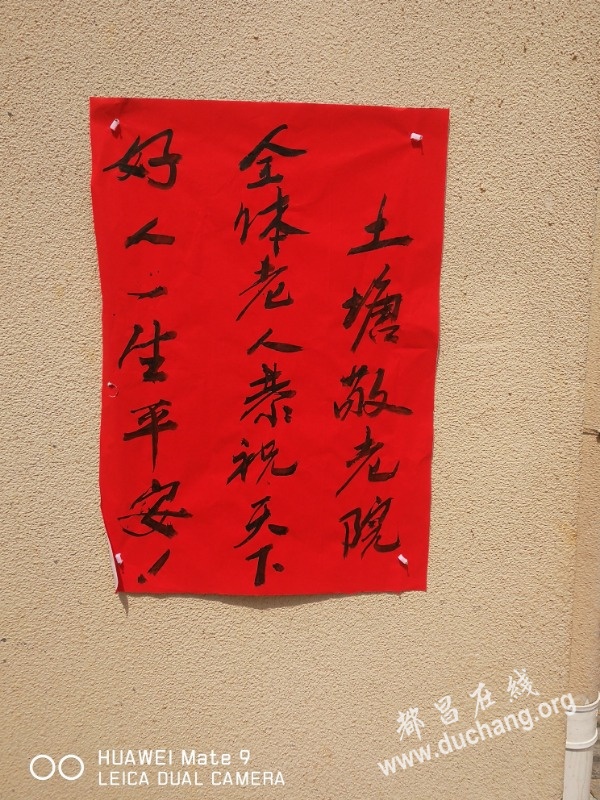 土塘敬老院
全体老人恭祝天下
好人一生平安！
都昌在线
www.duchang.org
HUAWEI Mate 9
LEICA DUAL CAMERA